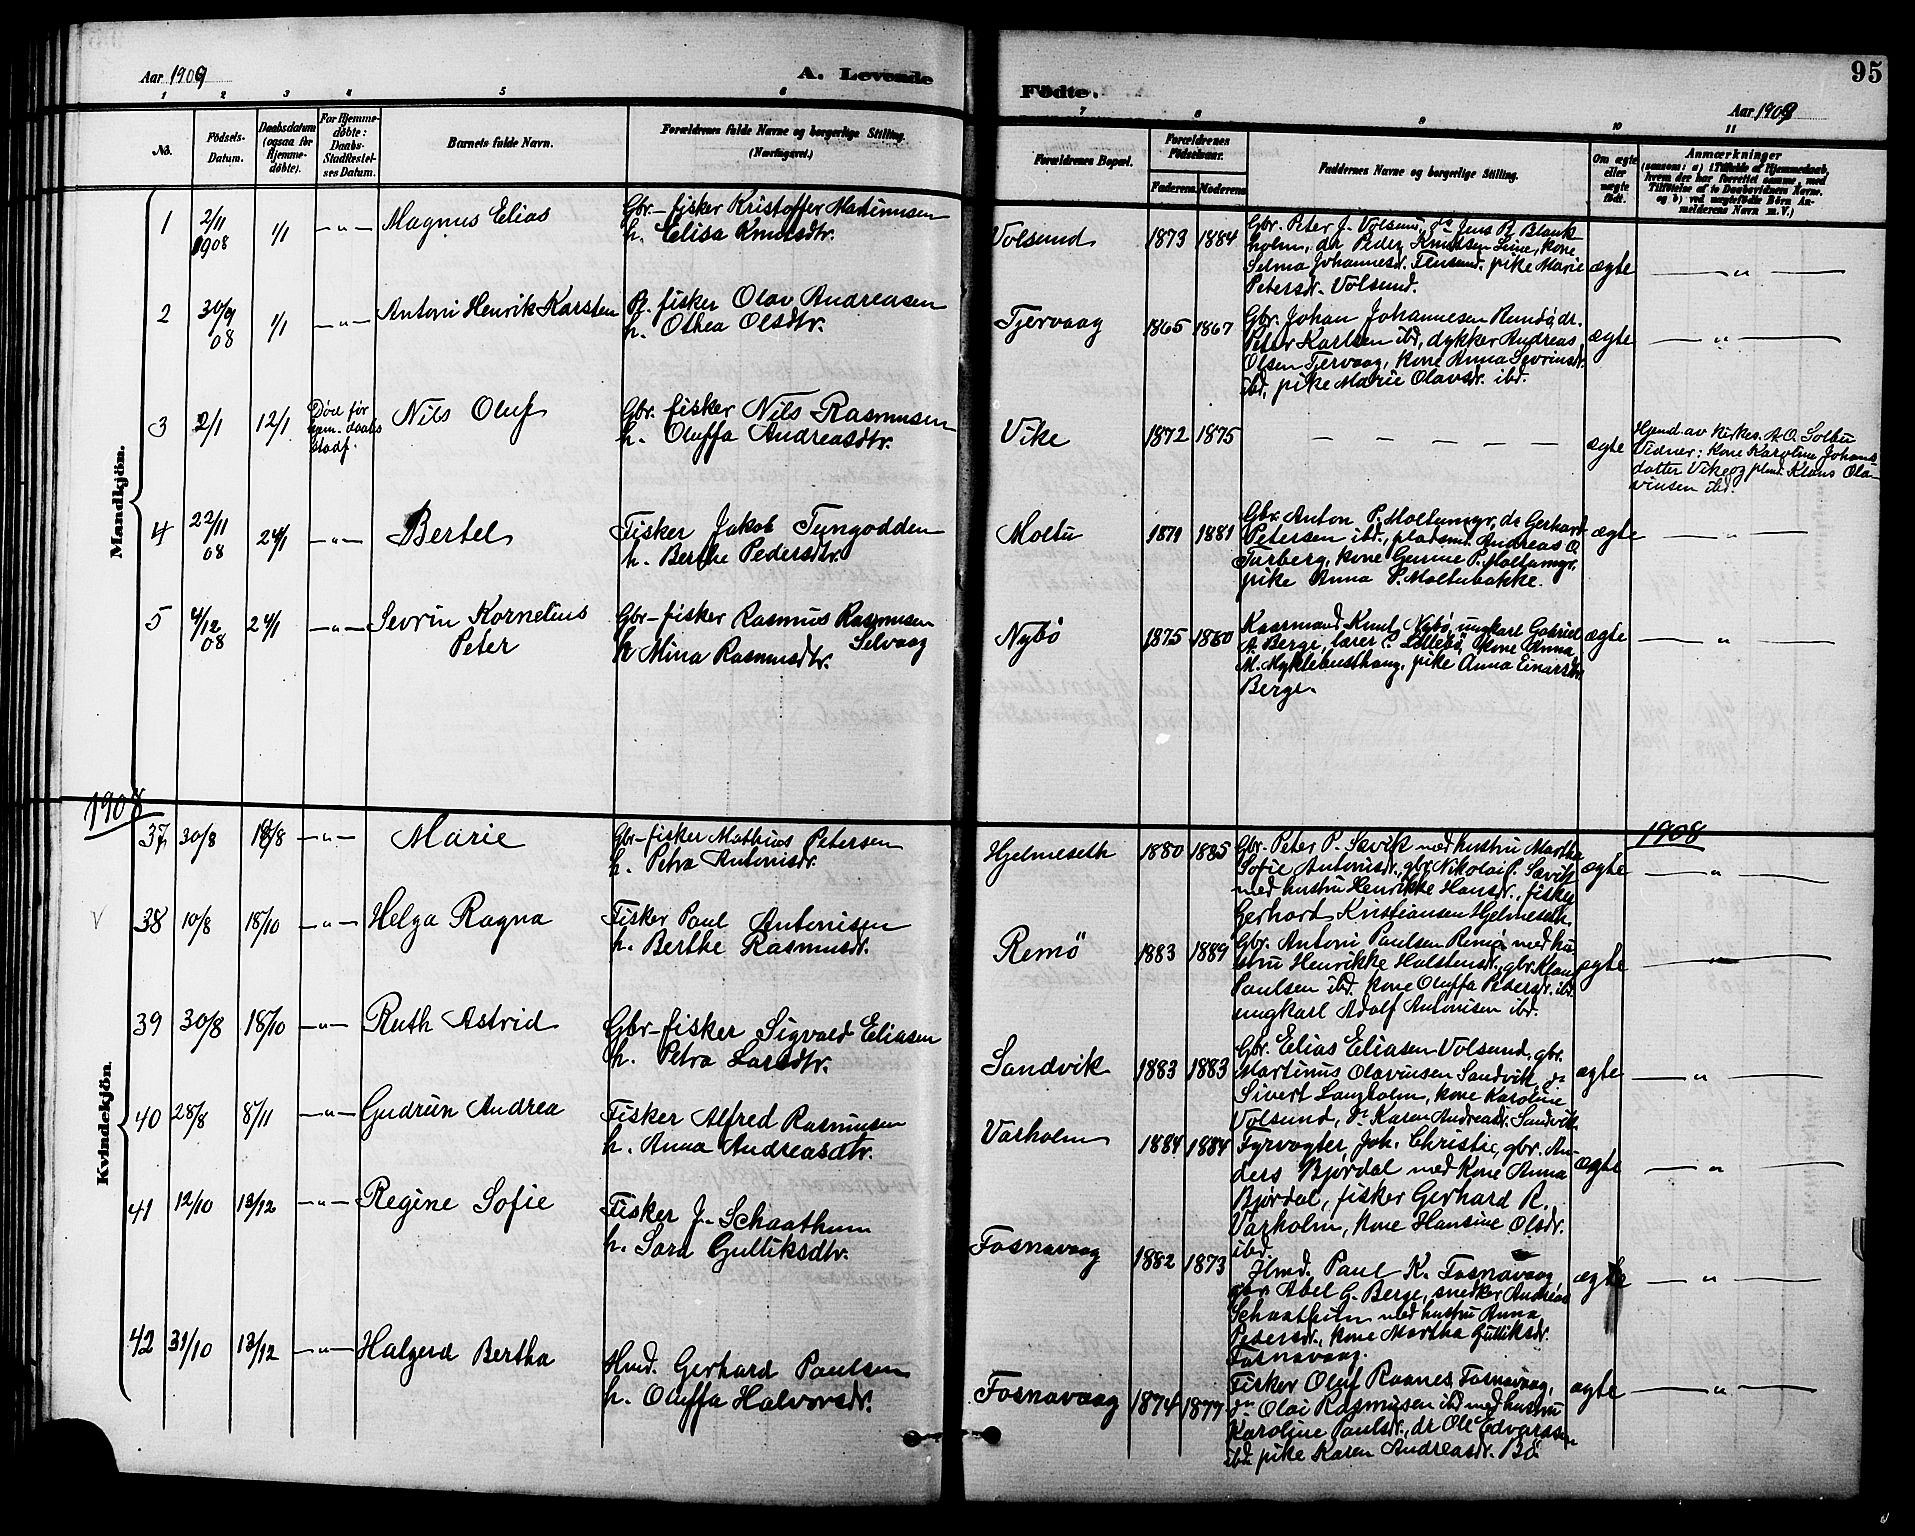 95
Aar 1909
A. Levende
Fødte.
Aar 1909
1 2 3 4 5 6 7 8 9 10 11
No.
Fødsels-
Datum.
Daabsdatum
(ogsaa for
Hjemme-
døbte).
For Hjemme-
døbte:
Daabs-
Stadfæstel-
ses Datum.
Barnets fulde Navn.
Forældrenes fulde Navne og borgerlige Stilling.
(Næringsvei.)
Forældrenes Bopæl.
Forældrenes
Fødselsaar.
Faderens Moderens
Faddernes Navne og borgerlige Stilling.
Om ægte
eller
uægte
født.
Anmærkninger
(saasom: a) i Tilfælde af Hjemmedaab,
hvem der har forrettet samme, med
Tilføielse af to Daabsvidners Navne,
og b) ved uægtefødte Børn An-
melderens Navn m. V.)
Mandkjøn.
1
2/11
1908
1/1
—"—
Magnus Elias
Gbr-fisker Kristoffer Martinusen
h. Elisa Knutsdtr.
Volsund
1873 1884
Gbr. Peter J. Volsund, do Jens P. Blank
holm, do Peder Knudsen Leine, kone
Selma Johannesdr. Flusund, pike Marie
Petersdr. Volsund.
ægte
—"—
2
30/9
08
1/1
—"—
Antoni Henrik Karsten
Pl. fisker Olav Andreasen
h. Othea Olsdtr.
Tjervaag
1865 1867
Gbr. Johan Johannesen Remö, do.
Peter Karlsen ibd, dykker Andreas
Olsen Tjervaag, kone Anna Sevrinsdr.
ibd, pike Marie Olavsdr. ibd.
ægte
—"—
3
2/1
12/1
Död för
hjem.daabs
stadf.
Nils Oluf
Gbr. fisker Nils Rasmusen
h. Oluffa Andreasdtr.
Vike
1872 1875
— — — — —
ægte
Hjmd. av kirkes. A.O. Solbu
Vidner: kone Karoline Johans
datter Vike og plmd. Klaus Ola
vinsen ibd.
4
22/11
08
24/1
—"—
Bertel
Fisker Jakob Tungodden
h. Berthe Pedersdtr.
Moltu
1871 1881
Gbr. Anton P. Moltumyr, do Gerhard
Petersen ibd., pladsmd. Andreas O.
Torberg, kone Gurine P. Moltumyr,
pike Anna P. Moltubakke.
ægte
—"—
5
4/12
08
24/1
—"—
Sevrin Kornelius
Peter
Gbr-fisker Rasmus Rasmusen
Selvaag
h Mina Rasmusdtr.
Nybö
1875 1880
Kaarmand Knut Nybö, ungkarl Gabriel
A. Berge, lærer C. Löllebö, kone Anna
M. Myklebusthaug, pike Anna Einarsdtr.
Berge.
ægte
—"—
1908
1908
Kvindekjøn.
37
30/8
18/8
—"—
Marie
Gbr-fisker Mathias Petersen
h. Petra Antonisdr.
Hjelmeseth
1880 1885
Gbr. Peter P. Sævik med hustru Martha
Sofie Antonisdr., gbr. Nikolai P. Sævik
med hustru Henrikke Hansdr., fisker
Gerhard Kristiansen Hjelmeseth.
ægte
—"—
38
10/8
18/10
—"—
Helga Ragna
Fisker Paul Antonisen
h. Berthe Rasmusdr.
Remö
1883 1889
Gbr. Antoni Paulsen Remö med hu
stru Henrikke Halstensdr., gbr. Klaus
Paulsen ibd. kone Oluffa Pedersdr. ibd.
ungkarl Adolf Antonisen ibd.
ægte
—"—
39
30/8
18/10
—"—
Ruth Astrid
Gbr-fisker Sigvald Eliasen
h. Petra Larsdtr.
Sandvik
1883 1883
Gbr. Elias Eliasen Volsund, gbr.
Martinus Olavinsen Sandvik, do
Sivert Langholm, kone Karoline
Volsund, do Karen Andreasdr. Sandvik
ægte
—"—
40
28/8
8/11
—"—
Gudrun Andrea
Fisker Alfred Rasmusen
h. Anna Andreasdtr.
Varholm
1884 1884
Fyrvogter Joh. Christie, gbr. An-
ders Bjørdal med kone Anna
Bjørdal, fisker Gerhard R.
Varholm, kone Hansine Olsdr.
ibd.
ægte
—"—
41
12/10
13/12
—"—
Regine Sofie
Fisker J. Schaathun
h. Sara Gulliksdtr.
Fosnavaag
1882 1873
Hmd. Paul K. Fosnavaag,
gbr. Abel G. Berge, snedker Andreas
Schaathun med hustru Anna
Pedersdr., kone Martha Gulliksdr.
Fosnavaag.
ægte
—"—
42
31/10
13/12
—"—
Halgerd Bertha
Hmd. Gerhard Paulsen
h. Oluffa Halvorsdr.
Fosnavaag
1874 1877
Fisker Oluf Raanes Fosnavaag,
do Olai Rasmusen ibd med hustru
Karoline Paulsdr., do Ole Edvardsen
ibd, pike Karen Andreasdr. Bö.
ægte
—"—